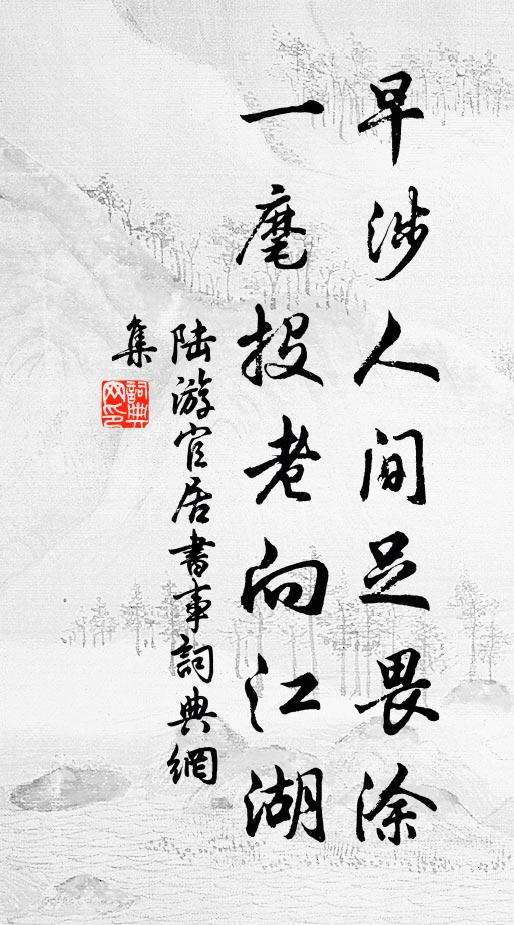 早涉人间足畏涂
一麾投老向江湖
陆游官居书事詞典網
集
詞典
网印